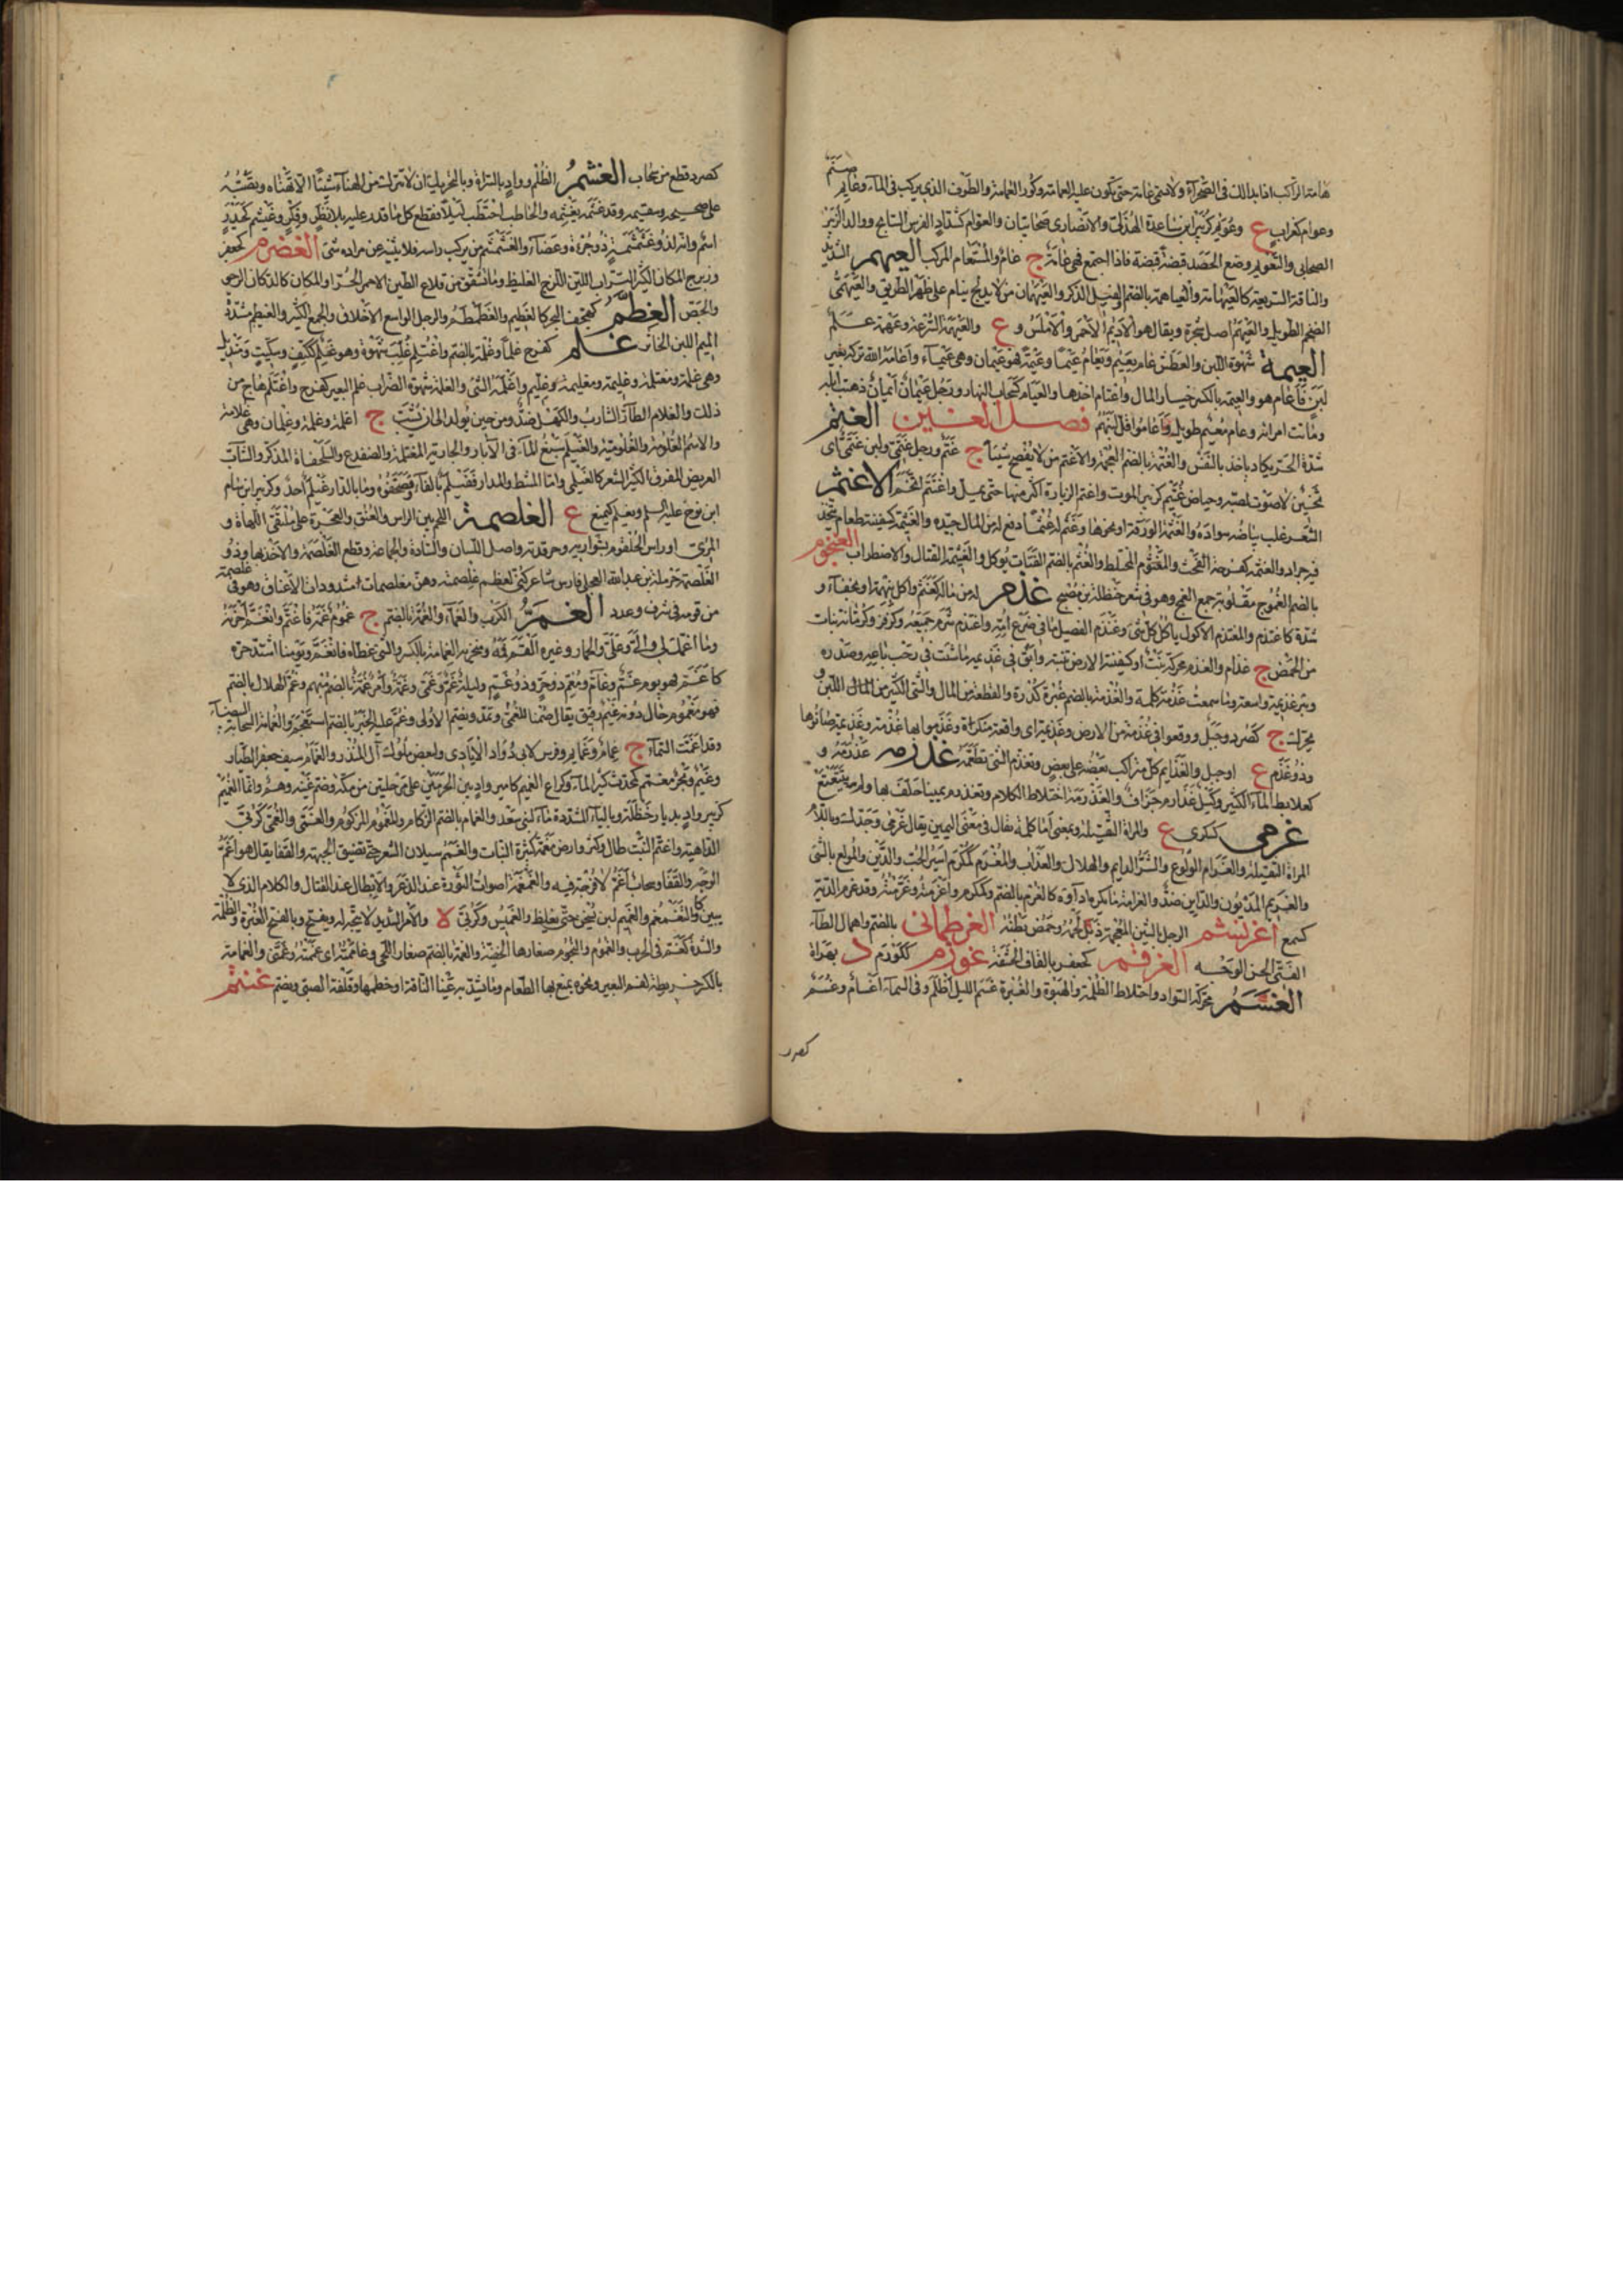 هامة الراكب اذا بدا لك في الصحراء ولا تسمى عامة حتى يكون عليه العمامة وكور العمامة والطوف الذي يركب في الماء وعايم صنم
وعوام كغراب ع وعويم كزبير ابن ساعدة الهذلي والانصاري صحابيان والعوام كشداد الفرس السابح ووالد الزبير
الصحابي والتعويم وضع الحصد قبضة قبضة فاذا اجتمع فهي عامة ج عام والمستعام المركب العيهم الشديد
والناقة السريعة كالعيهامة والعياهمة بالضم الفيل الذكر والعيهمان من لا يدلج ينام على ظهر الطريق والعيهمي
الضخم الطويل والعيهوم اصل شجرة ويقال هو الاديم الاحمر والاملس و ع والعيهمة السرعة وعيهمة علم
العيمة شهوة اللبن والعطش عام يعيم ويعام عيما وعيمة فهو عيمان وهي عيماء واعامه الله تركه بغير
لبن فاعام هو والعيمة بالكسر خيار المال واعتام اخذها والعيام كسحاب النهار ورجل عيمان ايمان ذهبت ابله
وماتت امراته وعام معيم طويل واعاموا قل لبنهم فصل الغين الغتم
شدة الحر يكاد ياخذ بالنفس والغتمة بالضم العجمة والاغتم من لا يفصح شيئا ج غتم ورجل غتمي ولبن غتمي اي
ثخين لا صوت لصبه وحياض غتيم كزبير الموت واغتم الزيارة اكثر منها حتى يمل واغتتم اتخم الاغثم
الشعر غلب بياضه سواده والغثمة الورقة او نحوها وغثم له غثما دفع له من المال جيده والغثيمة كسفينة طعام يتخذ
فيه جراد والغثمة كفرحة الفحث والمغثوم المخلط والغثم بالضم القبات يوكل والغيثمة القتال والاضطراب الغجوم
بالضم الغموج مقلوبة جمع الغمج وهو في شعر حنظلة بن مصبح غذم له من ماله كغثم واكل بنهمة او بجفاء و
شدة كاغتذم والمغتذم الاكول ياكل كل شيء وغذم الفصيل ما في ضرع امه واغتذم شرب جميعه وكزفر وكرمانة نبات
من الحمض ج غذام والغذم محركة نبت او كسفينة الارض تنبته
وبئر غذيمة واسعة وما سمعت غذمة كلمة والغذمة بالضم غبرة كدرة والقطعة من المال والشيء الكثير من المال اللبن و
يحرك ج كصرد وجبل ووقعوا في غذمة من الارض وغذيمة اي واقعة منكرة
وذو غذم ع او جبل والغذايم كل متراكب بعضه على بعض وتغذم الشيء تطعمه غذرمه غذرمة و
كعلابط الماء الكثير وكيل غذارم جزاف والغذرمة اختلاط الكلام وتغذرم يمينا حلف بها ولم يتتعتع
غرمى كسكرى ع والمراة الثقيلة وبمعنى اما كلمة يقال في معنى اليمين يقال غرمى وجدك وباللام
المراة الثقيلة والغرام الولوع والشر الدايم والهلاك والعذاب والمغرم كمكرم اسير الحب والدين والمولع بالشيء
والغريم المديون والداين ضد والغرامة ما يلزم اداوه كالغرم بالضم وكمكرم واغرمته وغرمته وقد غرم الدية
كسمع اغرنشم الرجل بالشين المعجمة ذبل لحمه وحمص بطنه الغرطماني بالضم واهمال الطاء
الفتى الحسن الوجه الغرقم كجعفر بالقاف الحشفة غوزم ككوزم د بهراة
الغسم محركة السواد واختلاط الظلمة والهبوة والغبرة غسم الليل اظلم وفي السماء اغسام وغسم
كصرد
كصرد قطع من سحاب الغشم الظلم وواد بالسراة وبالتحريك ان لا تترك من الهناء شيئا الا تهناه وبصحته
على صحيحه وسقيمه وقد غشمه يغشمه والحاطب احتطب ليلا فقطع كل ما قدر عليه بلا نظر وفكر وغشيم كحذيم
اسم وانه لذو غشمشمية ذو جرءة ومضاء والغشمشم من يركب راسه فلا يثنيه عن مراده شيء الغضرم كجعفر
وزبرج المكان الكثير التراب اللين اللزج الغليظ وما تشقق من قلاع الطين الاحمر الحر او المكان كالكذان الرخو
والجص الغطم كهجف البحر كالغطيم والغطمطم والرجل الواسع الاخلاق والجمع الكثير والغيطم مشددة
الميم اللبن الخاثر غلم كفرح غلما وغلمة بالضم واغتلم غلب شهوة وهو غلم ككتف وسكيت ومنديل
وهي غلمة ومغتلمة وغليمة ومغليمة وغليم واغلمه الشيء والغلمة شهوة الضراب غلم البعير كفرح واغتلم هاج من
ذلك والغلام الطار الشارب والكهل ضد او من حين يولد الى ان يشب ج اغلمة وغلمة وغلمان وهي غلامة
والاسم الغلومة والغلومية والغيلم منبع الماء في الابار والجارية المغتلمة والضفدع والسلحفاة الذكر والشاب
العريض المفرق الكثير الشعر كالغيلمي واما المشط والمدرا ففيلم بالفاء وصحفوه وما بالدار غيلم احد وكزبير ابن سام
ابن نوح عليه السلم وتغيلم كيمنع ع الغلصمة اللحم بين الراس والعنق او العجرة على ملتقى اللهاة و
المري او راس الحلقوم بشواربه وحرقدته واصل اللسان والسادة والجماعة وقطع الغلصمة والاخذ بها وذو
الغلصمة حرملة بن عبد الله العجلي فارس شاعر كني لعظم غلصمته وهن مغلصمات مشدودات الاعناق وهو في غلصمة
من قومه في شرف وعدد الغم الكرب والغماء والغمة بالضم ج غموم غمه فاغتم وانغم احزنه
وما اغمك لي والي وعلي والحمار وغيره القم فمه ومنخريه الغمامة بالكسر والشيء غطاه فانغم ويومنا اشتد حره
كاغم فهو يوم غم وغام ومغم ذو حر وذو غم وليلة غم وغمى وغمة وامر غمة بالضم مبهم وغم الهلال بالضم
فهو مغموم حال دونه غيم رقيق يقال صمنا للغمى وتمد وبضم الاولى وغم عليه الخبر بالضم استعجم والغمامة السحابة او البيضاء
وقد اغمت السماء ج غمام وغمايم وفرس لابي دؤاد الايادي ولبعض ملوك آل المنذر والغمام سيف جعفر الطيار
وغيم وبحر مغمم كمحدث كثير الماء وكراع الغميم كامير واد بين الحرمين على مرحلتين من مكة وضم غينه وهم وانما الغميم
كزبير واد بديار حنظلة وبالياء المشددة ماء لبني سعد والغمام بالضم الزكام والمغموم المزكوم والغمى والغمى كربى
الداهية واغتم النبت طال وكثر وارض مغمة كثيرة النبات والغمم سيلان الشعر حتى تضيق الجبهة والقفا يقال هو اغم
الوجه والقفا وسحاب اغم لا فرجة فيه والغمغمة اصوات الثورة عند الذعر والابطال عند القتال والكلام الذي لا
يبين كالتغمغم والغميم لبن يسخن حتى يغلظ والغميس وكربى ع والامر الشديد لا يتجه له ويفتح وبالفتح الغبرة والظلمة
والشدة كالغم في الحرب والغموم والنجوم صغارها الخفية والغمة بالضم صغار اللحى وغاممته اي غممته وغمني والغمامة
بالكسر خريطة لفم البعير ونحوه يمنع بها الطعام وما يشد به عينا الناقة او خطمها وقلفة الصبي ويضم غنتم